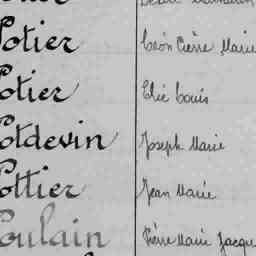 Potier Léon Pierre Marie
Potier Elie Louis
Potdevin Joseph Marie
Pottier Jean Marie
Poulain Pierre Marie Jacqu